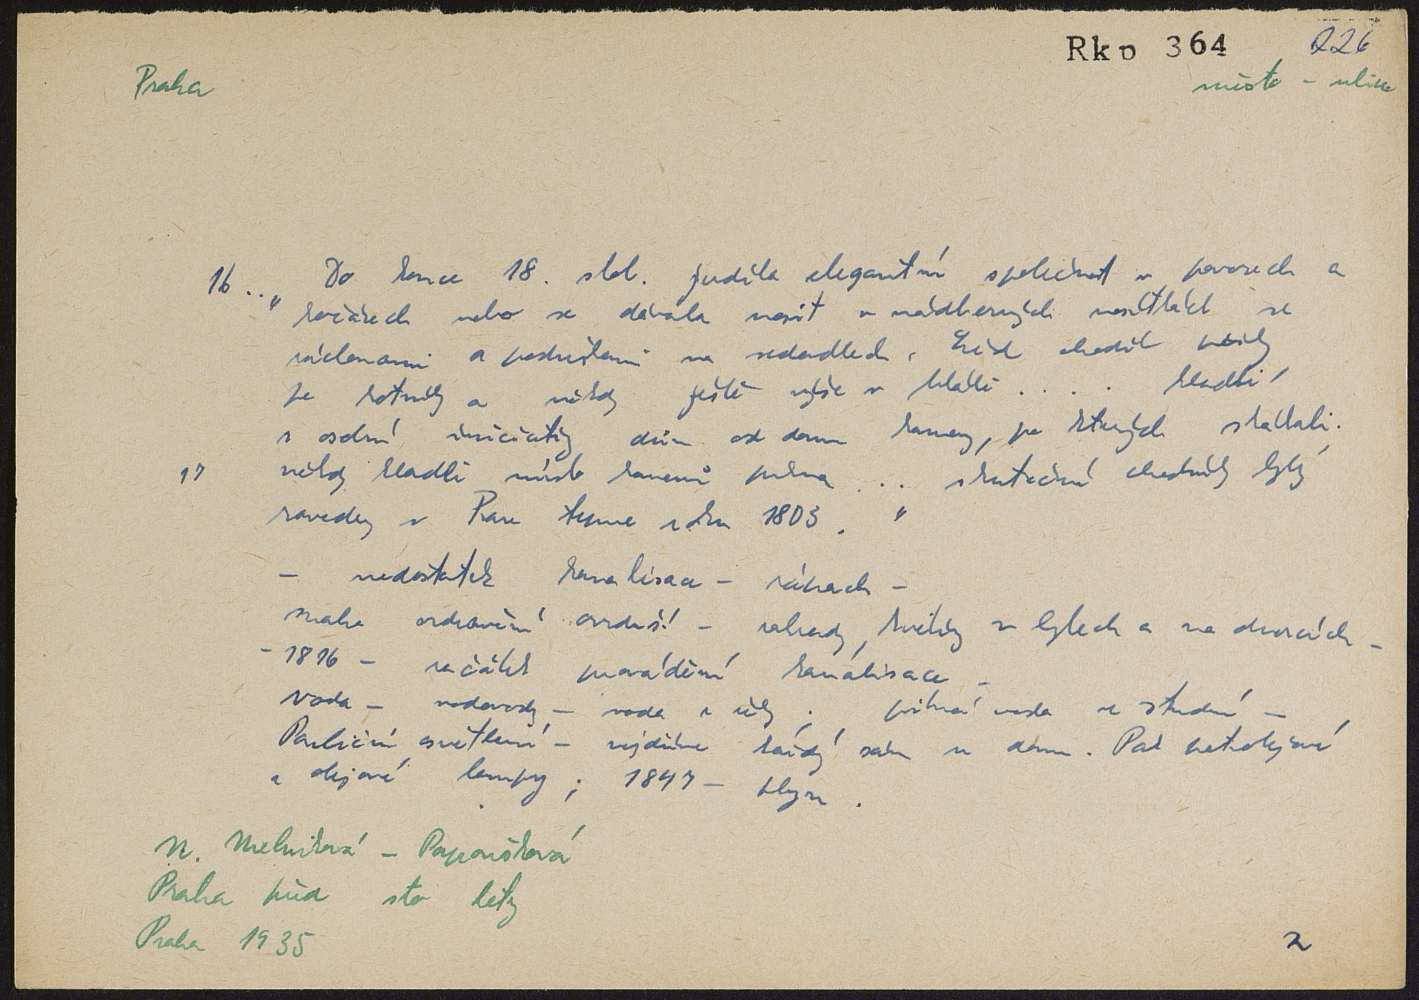 Rkp 364 226
Praha
město - ulice
16 .. „ Do konce 18. stol. jezdila elegantní společnost v povozech a
kočárech nebo se dávala nosit v nádherných nosítkách se
záclonami a poduškami na sedadlech. Lid chodil pěšky
po kotníky a někdy ještě výše v blátě . . . . kladli
z osobní iniciativy dům od domu kameny, po kterých skákali.
17 někdy kladli místo kamenů prkna ... skutečné chodníky byly
zavedeny v Praze teprve roku 1803. "
- nedostatek kanalisace - zápach -
snaha ozdravění ovzduší - zahrady, květiny v bytech a na dvorcích -
- 1816 - začátek provádění kanálisace -
voda - vodovody - voda z řeky ; pitná voda ze studní -
Pouliční osvětlení - nejdříve každý sám u domu. Pak petrolejové
a olejové lampy ; 1847 - plyn .
N. Melniková - Papoušková
Praha před sto lety
Praha 1935